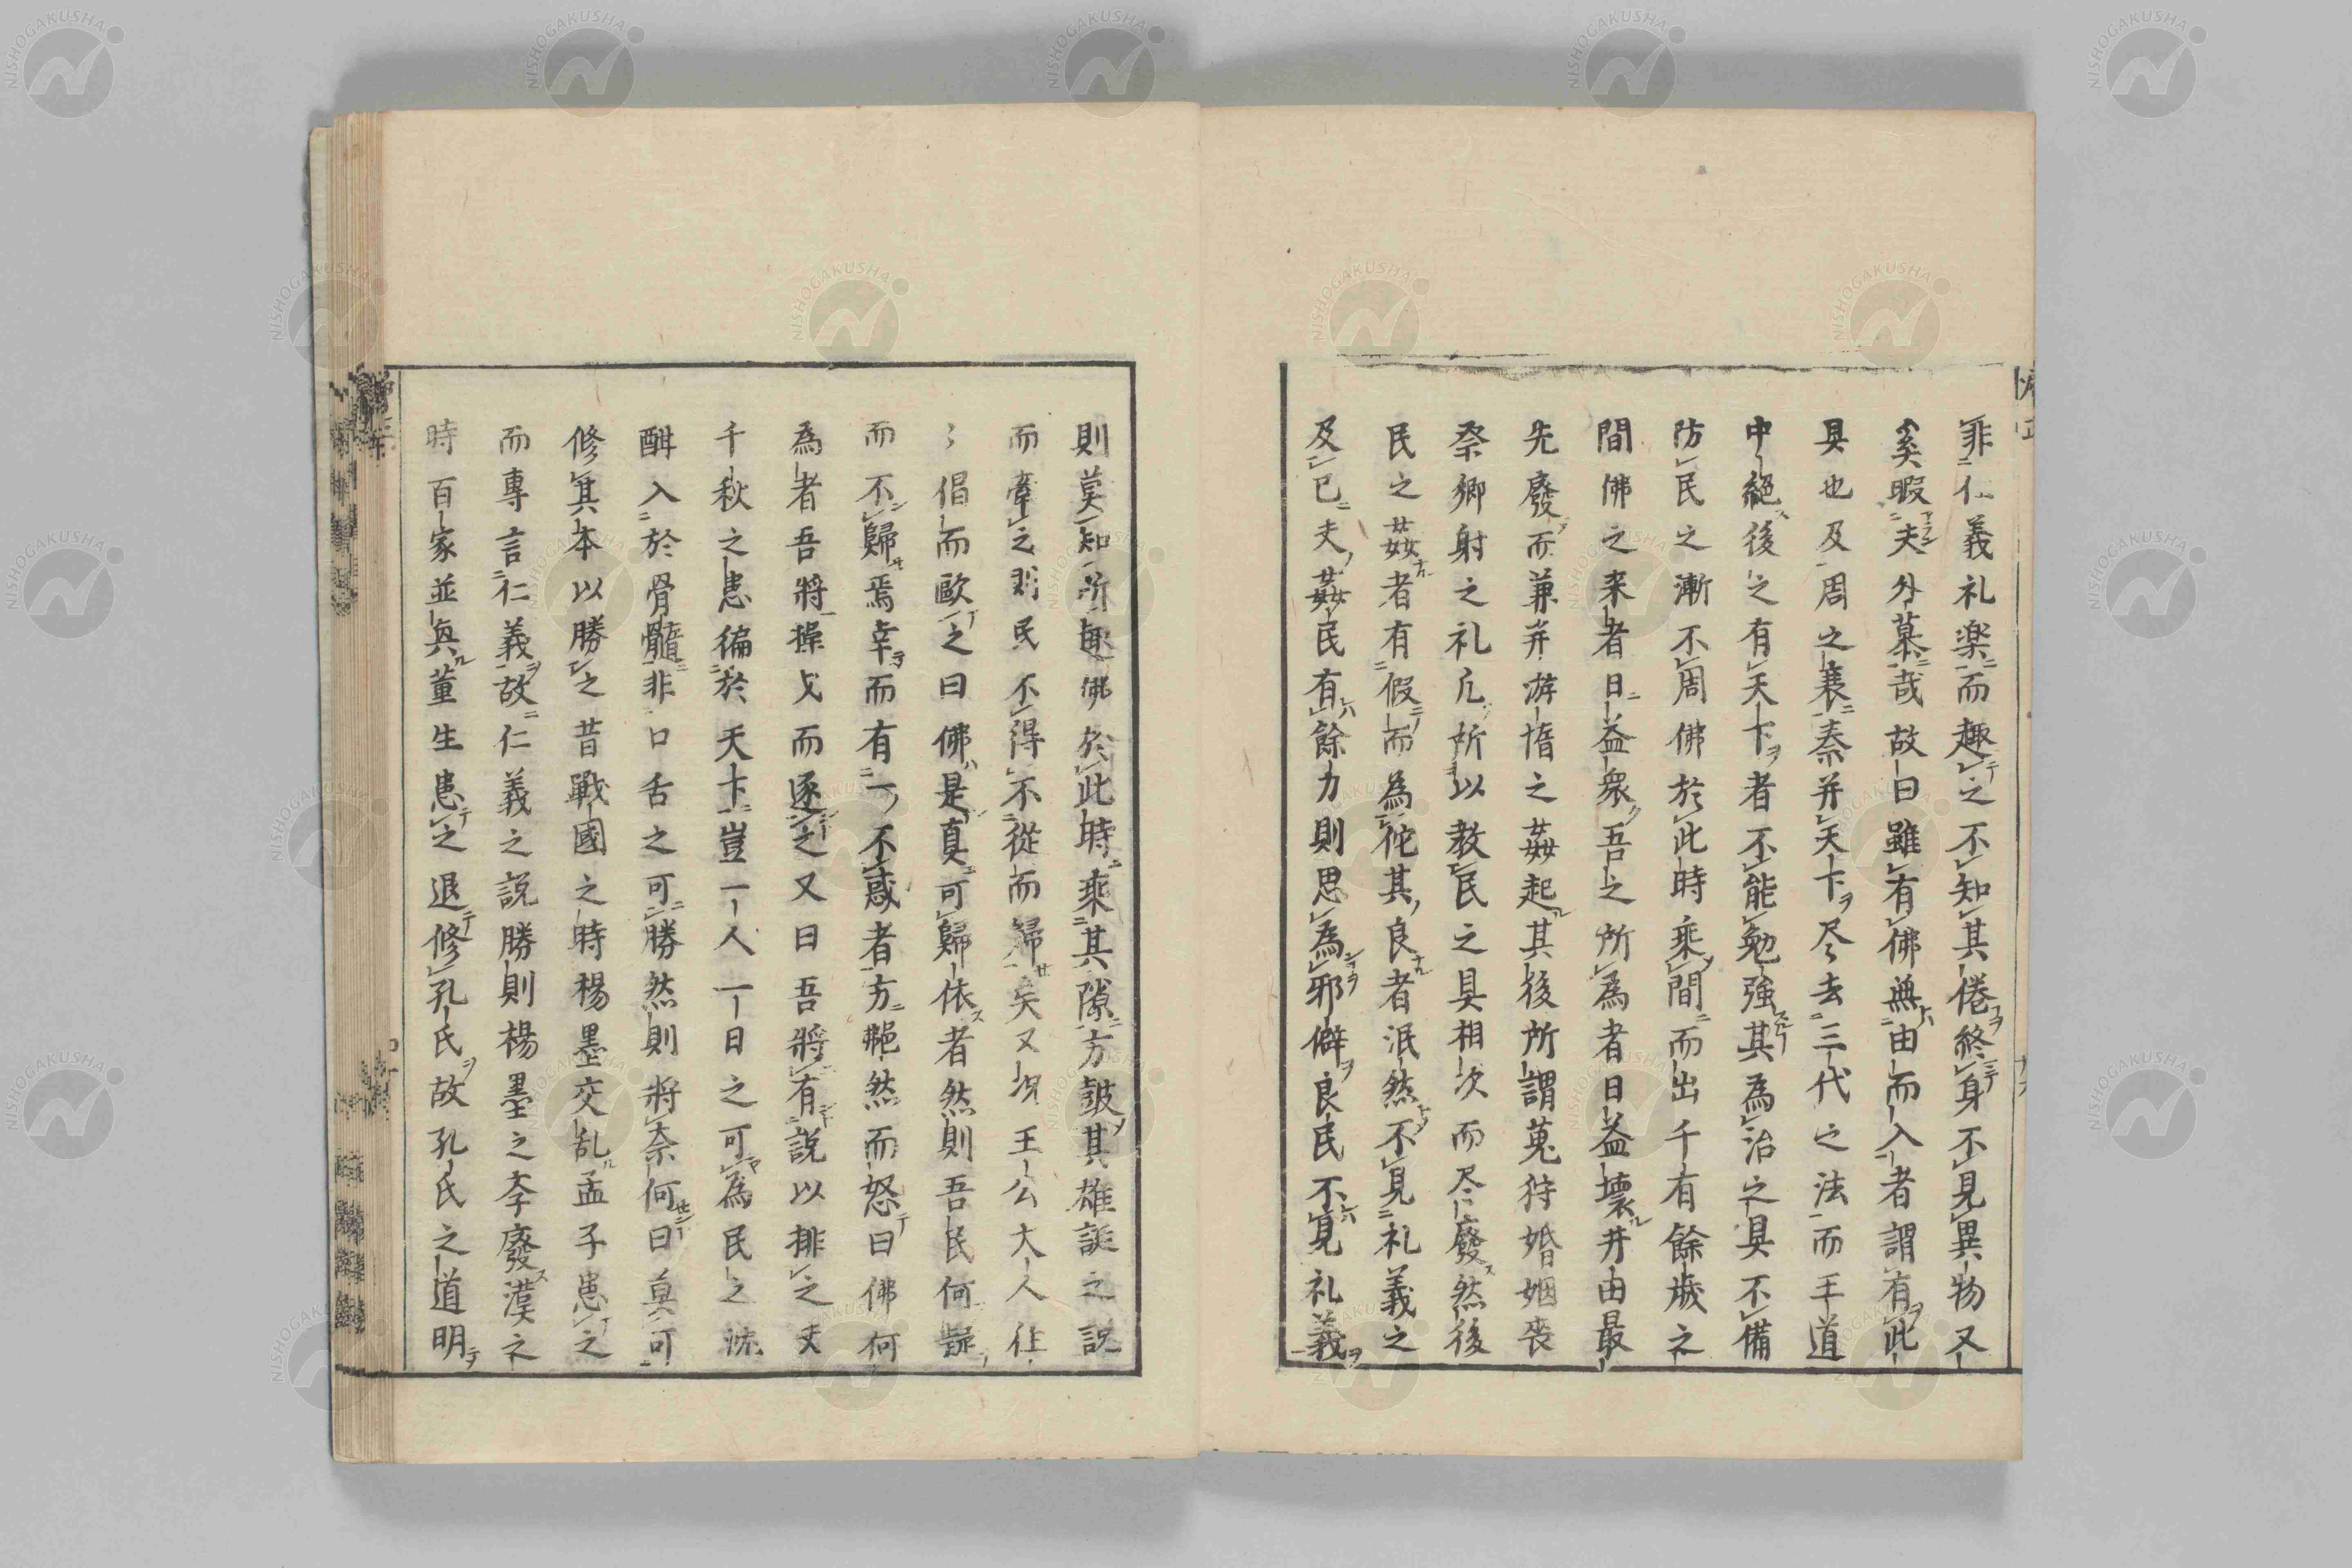 非仁義礼楽而趣之不知其倦終身不見異物又
奚暇夫外慕哉故曰雖有佛無由而入者謂有此
具也及周之衰秦并天下尽去三代之法而王道
中絕後之有天下者不能勉強其為治之具不備
防民之漸不周佛於此時乘間而出千有餘歳之
間佛之来者日益衆吾之所為者日益壊井由最
先廢而兼并游惰之姦起其後所謂蒐狩婚姻喪
祭郷射之礼凡所以教民之具相次而尽廢然後
民之姦者有假而為佗其良者泯然不見礼義之
及已夫姦民有餘力則思為邪僻良民不見礼義
則莫知所趣佛於此時乘其隙方皷其雄誕之説
而牽之則民不得不從而歸矣又况王公大人往
〻倡而歐之曰佛是真可歸依者然則吾民何疑
而不歸焉幸而有一不惑者方艴然而怒曰佛何
為者吾將操戈而逐之又曰吾將有説以排之夫
千秋之患徧於天下豈一人一日之可為民之沈
酣入於骨髓非口舌之可勝然則將奈何曰莫可
修其本以勝之昔戰國之時楊墨交乱孟子患之
而專言仁義故仁義之説勝則楊墨之李廢漢之
時百家並興董生患之退修孔氏故孔氏之道明